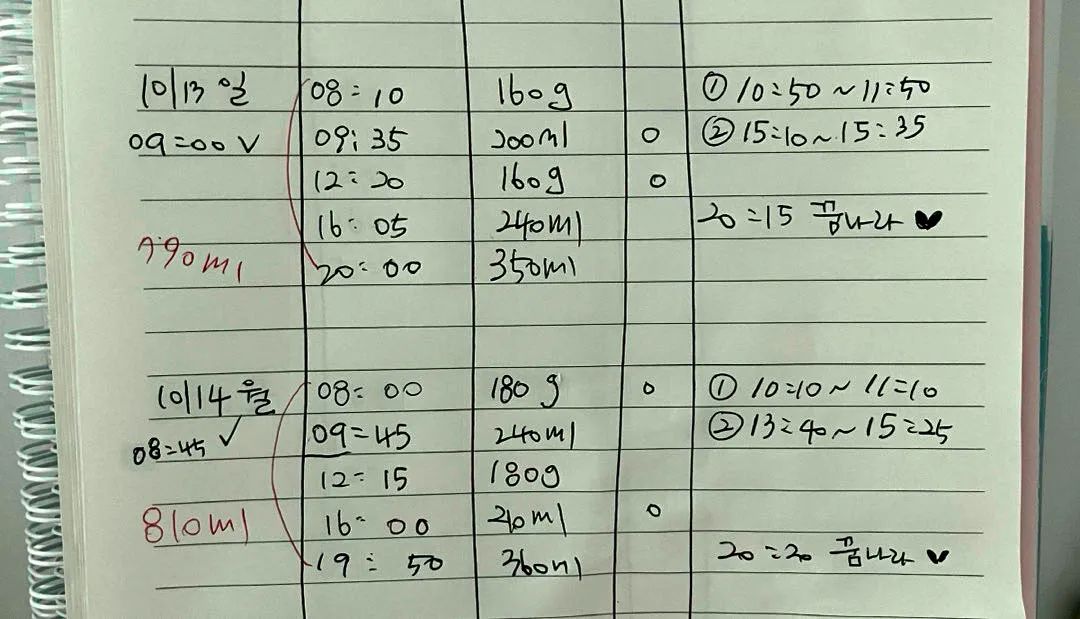 10/13 일 08:10 160g ① 10:50 ~ 11:50
09:00 V 09:35 200ml o ② 15:10 ~ 15:35
12:20 160g o
16:05 240ml 20:15 꿈나라 ♥
790ml 20:00 350ml
10/14 월 08:00 180g o ① 10:10 ~ 11:10
08:45 ✓ 09:45 240ml ② 13:40 ~ 15:25
12:15 180g
810ml 16:00 210ml o
19:50 360ml 20:20 꿈나라 ♥